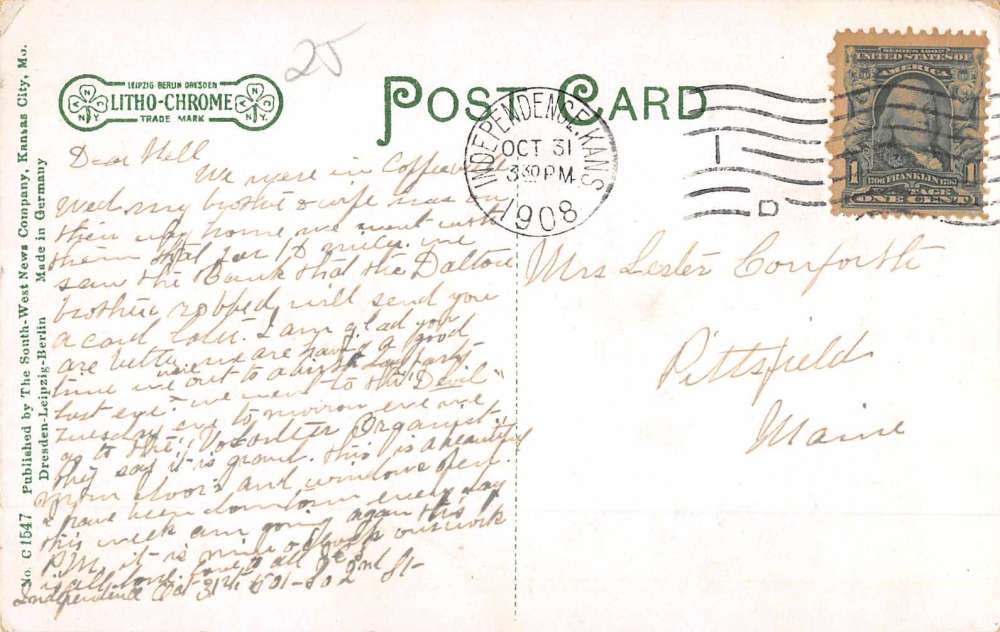 25
LEIPZIG BERLIN DRESDEN
LITHO-CHROME
TRADE MARK
N N
C Y
N Y
POST CARD
INDEPENDENCE, KANS
OCT 31
330 PM
1908
1
D
SERIES 1902
UNITED STATES OF
AMERICA
1706 FRANKLIN 1790
1 1
ONE CENT
No. C 1547 Published by The South-West News Company, Kansas City, Mo.
Dresden-Leipzig-Berlin Made in Germany
Dear Nell
We were in Coffeeville
Wed. my brother & wife was on
their way home we went with
them that far 18 miles. we
saw the Bank that the Dalton
brothers robbed, will send you
a card later. I am glad you
are better we are having a good
time we were out to a party
last eve. we went to the "Devil"
Tuesday eve tomorrow eve we
go to the "Volunteer Organist"
they say it is grand. this is a beautiful
morn doors and windows open.
I have been downtown every day
this week am going again this
P.M. it is nine o clock our work
is all done love to all
Independence Oct 31st 601-802 2nd St-
Mrs Lester Conforth
Pittsfield
Maine